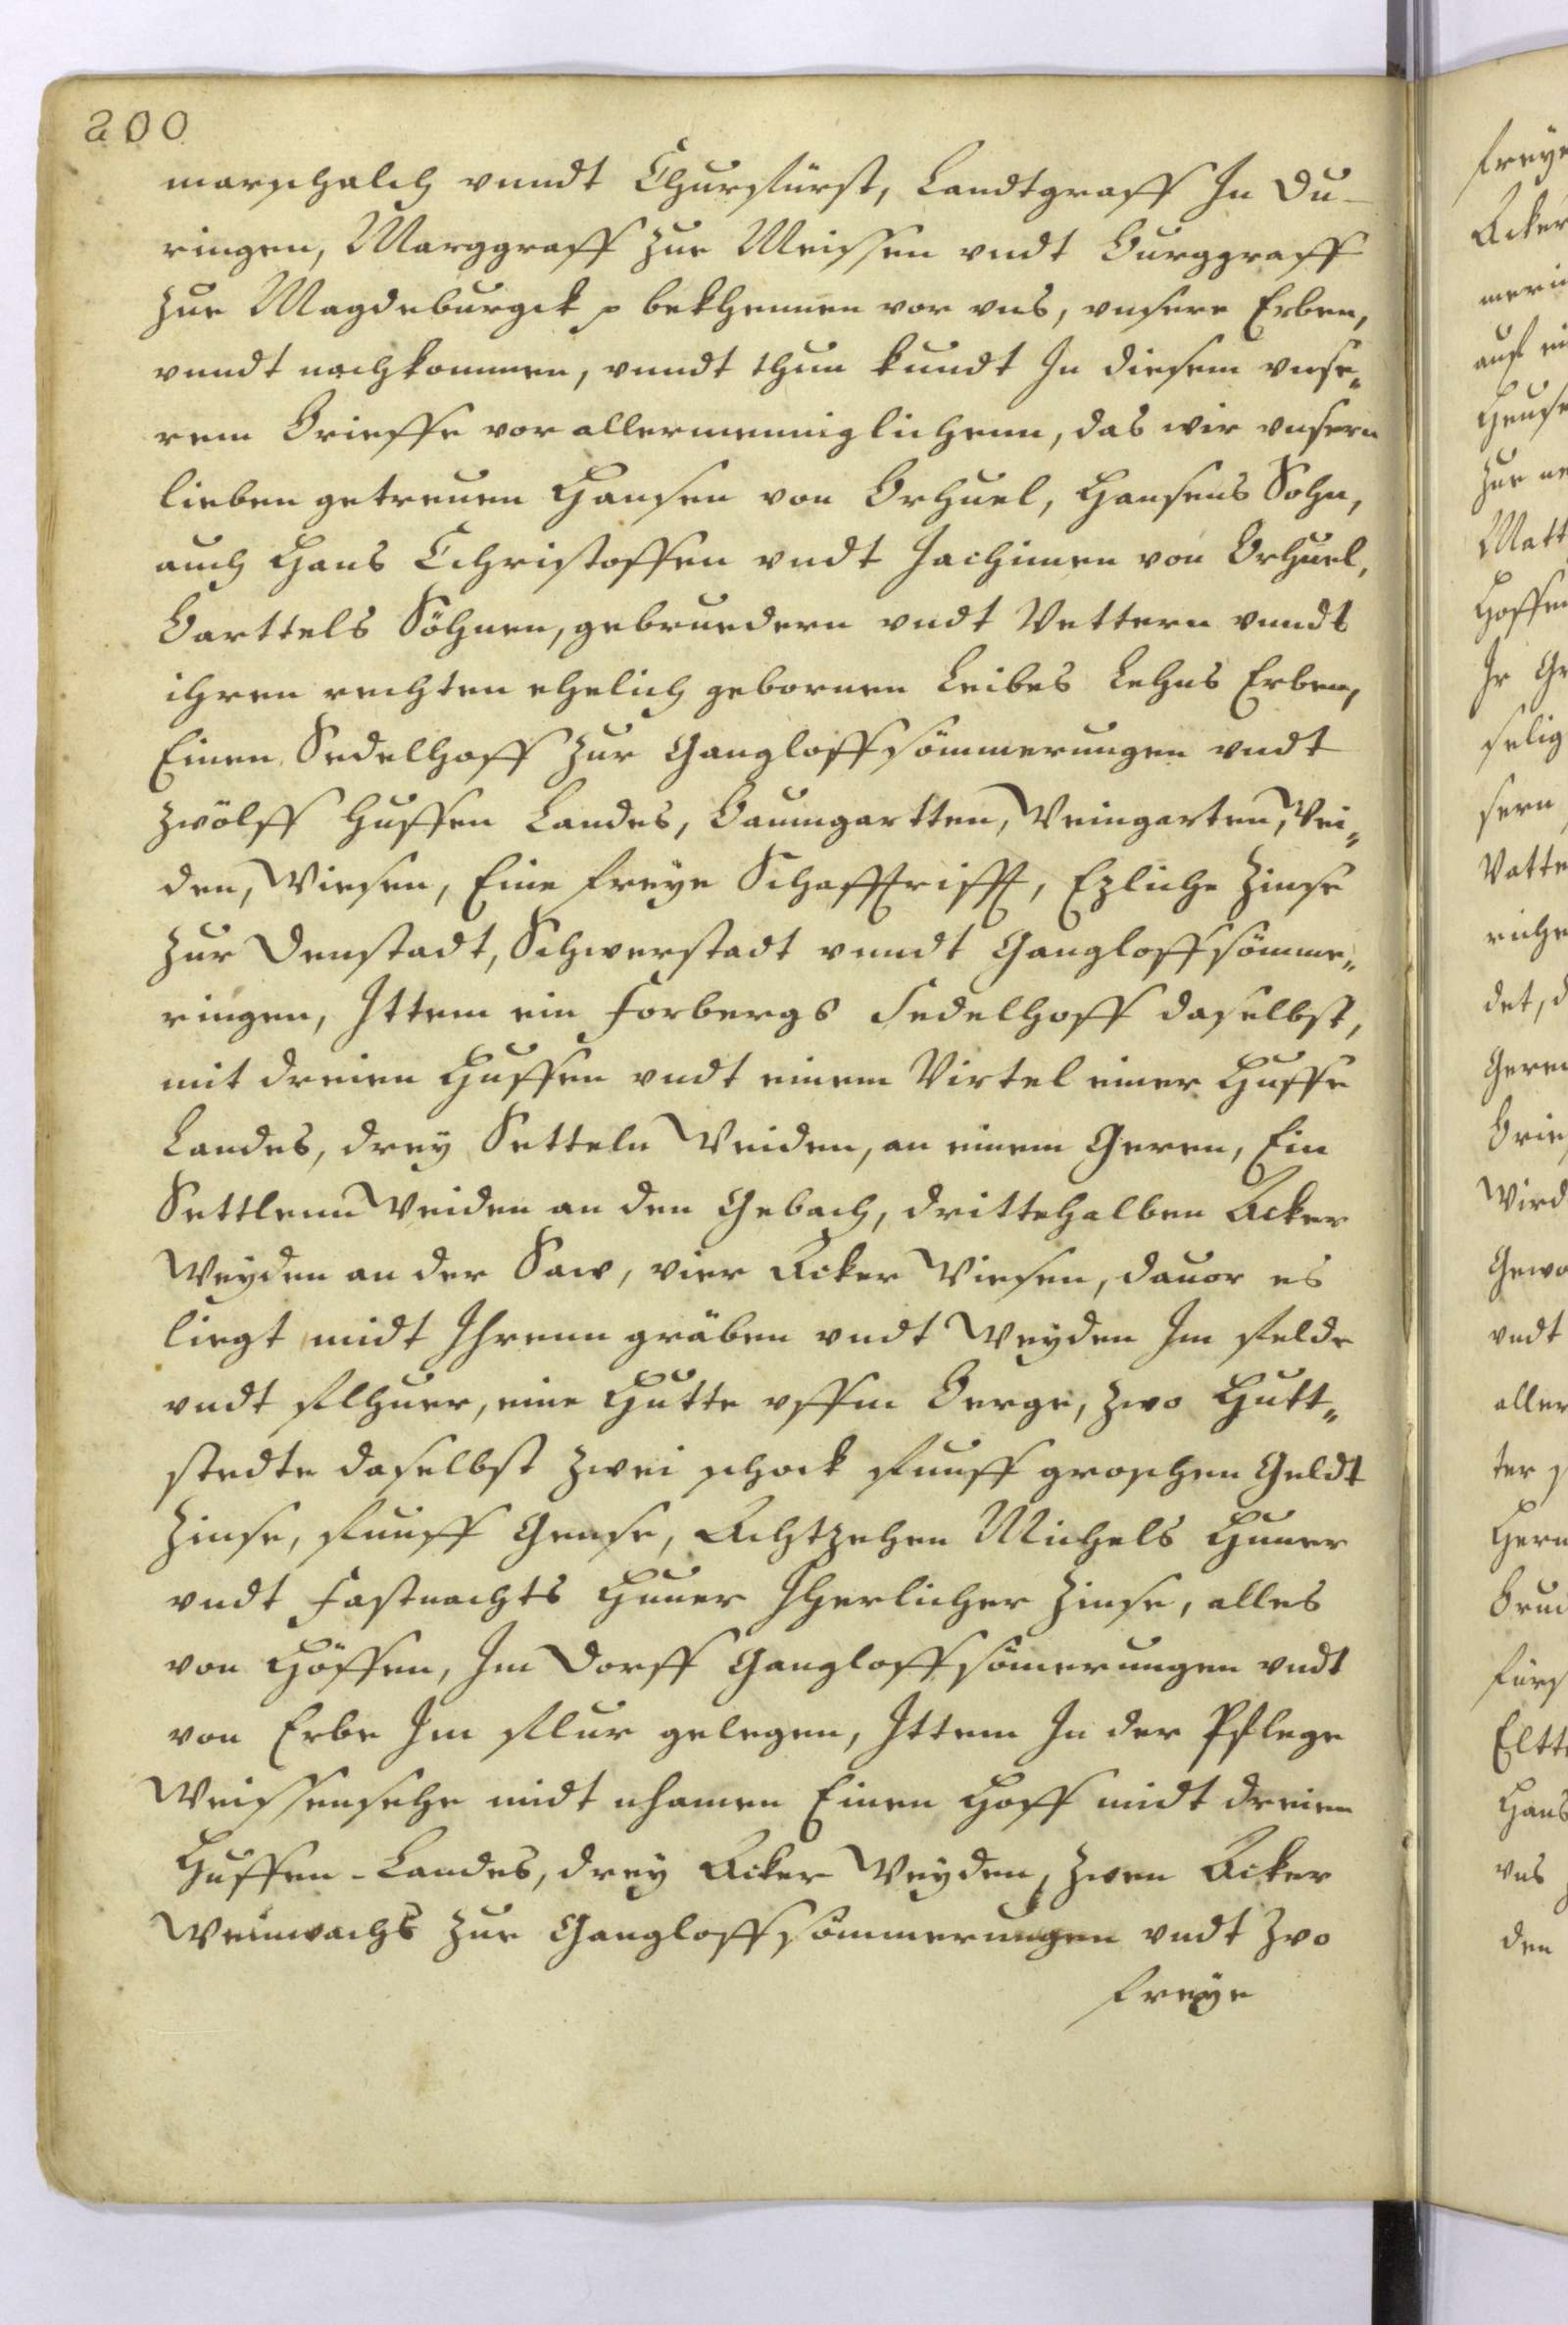 200
marschalch vnndt Churfürst, Landtgraff In Du-
ringen, Marggraff zur Meissen vndt Burggraff
zur Magdeburgck p bekhennen vor vns, vnsere Erben,
vnndt nachkommen, vnndt thun kundt In diesem vnse„
rem Brieffe vor allermenniglichenn, das wir vnsern
lieben getreuen Hansen von Brhuel, Hansens Sohn,
auch Hans Christoffen vndt Jachimen von Brhuel,
Barttels Söhnen, gebruedern vndt Vettern vnndt
ihren rechten ehelich gebornen Leibes Lehns Erben,
Einen Sedelhoff zur Gangloffsömmerungen vndt
zwölff Huffen Landes, Baumgartten, Weingarten, Wei„
den, Wiesen, Eine freye Schafftrifft, Ezliche Zinse
zur Denstadt, Schwerstadt vnndt Gangloffsömme„
ringen, Ittem ein Forbergs Sedelhoff daselbst,
mit dreien Huffen vndt einem Virtel einer Huffe
Landes, drey Setteln Weiden, an einem Geren, Ein
Settlenn Weiden an den Gebach, drittehalben Acker
Weyden an der Saw, vier Acker Wiesen, dauor es
liegt midt Ihrenn gräben vndt Weyden Im felde
vndt flhuer, eine Hutte vffm Berge, zwo Hutt„
stedte daselbst zwei schock funff groschen Geldt
Zinse, funff Gense, Achtzehen Michels Huner
vndt Fastnachts Huner Jherlicher Zinse, alles
von Höffen, Im Dorff Gangloffsömerungen vndt
von Erbe Im flur gelegen, Ittem In der Pflege
Weissensehe midt nhamen Einen Hoff midt dreien
Huffen-Landes, drey Acker Weyden, zwen Acker
Weinwachs zur Gangloffsömmerungen vndt zwo
freye
freye
Acker
auf
zur
Matt
Hoffen
Ir
selig
sern
Vatte
riche
det, d
Wird
Gewo
vndt
aller
ter
Eltt
Hans
vns
den